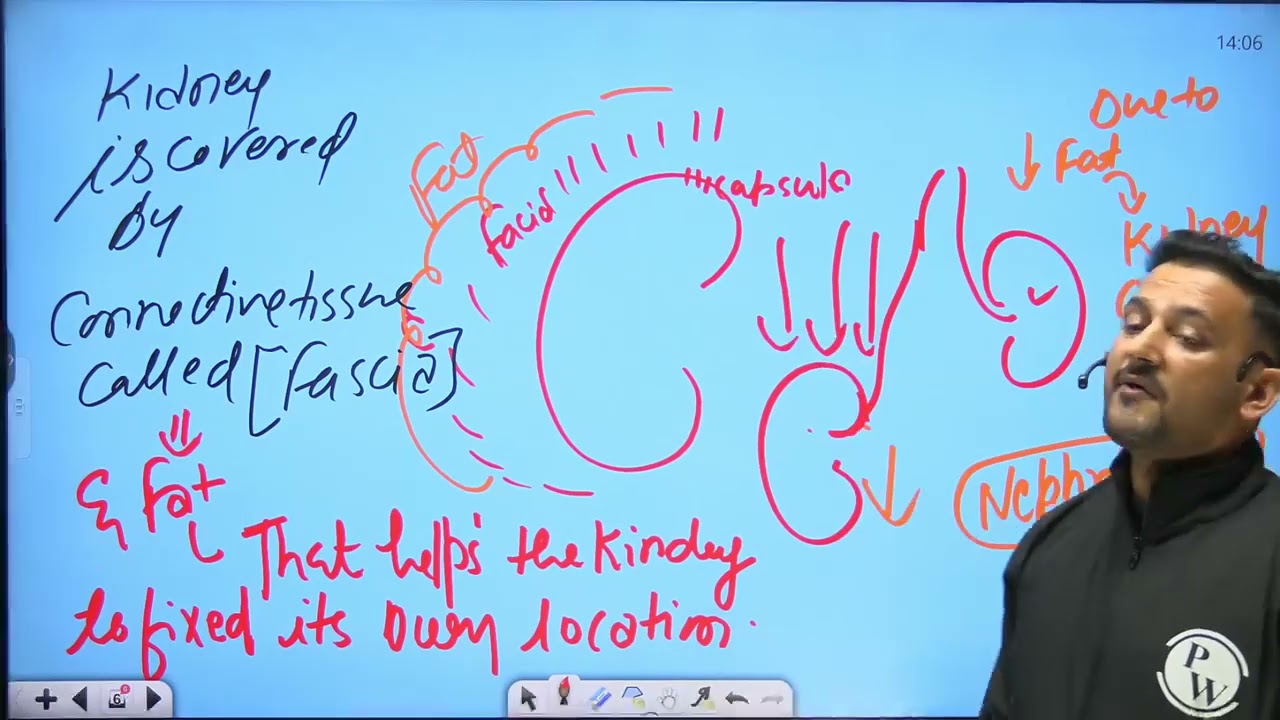 14:06
Kidney
is covered
by
Connective tissue
called [fascia]
& Fat
That helps the Kindey
to fixed its Own location.
Fat
facia
capsule
Due to
↓ Fat
Kidney
Neph
6
PW